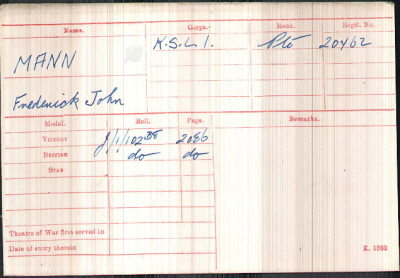 Name. Corps. Rank. Regtl. No.
MANN K.S.L.I. Pte 20462
Frederick John
Medal. Roll. Page. Remarks.
VICTORY J/1/102 B8 2086
BRITISH do do
STAR
Theatre of War first served in
Date of entry therein K. 1380